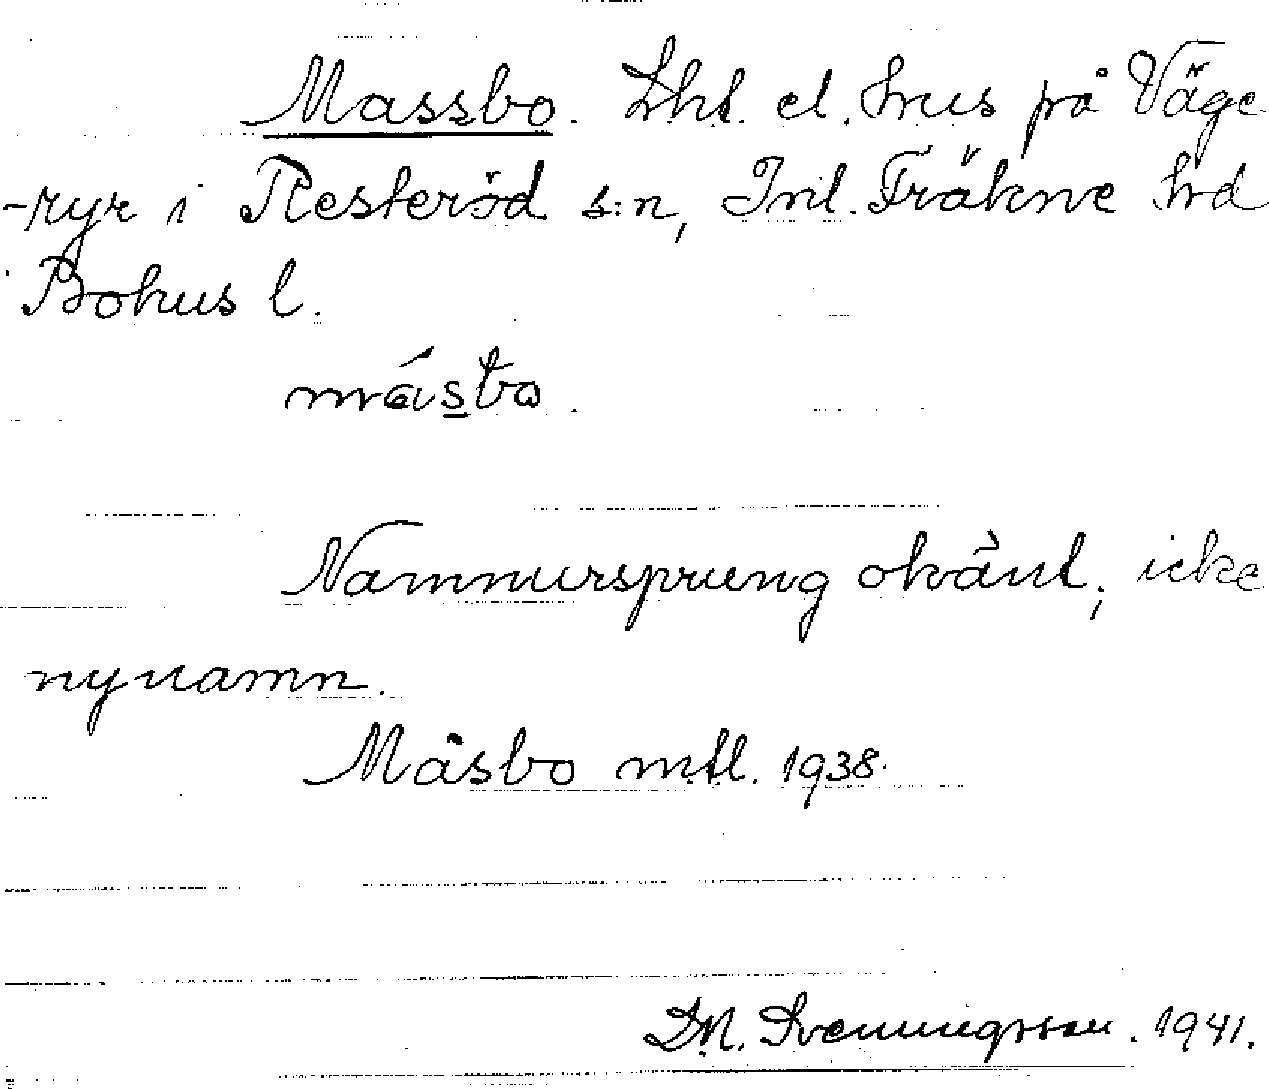 Massbo. Lht. el. hus på Väge
-ryr i Resteröd s:n, Inl. Fräkne hd
i Bohus l.
másbo.
Namnursprung okänt, icke
nynamn.
Måsbo mtl. 1938.
D.N. Svenningsson. 1941.